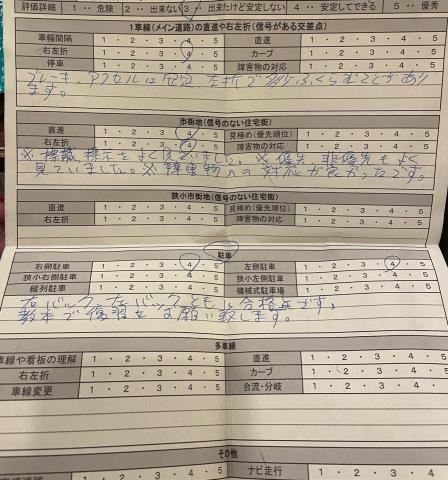 評価詳細 1‥危険 2‥出来ない 3‥出来たけど安定しない 4‥安定してできる 5‥優秀
1車線(メイン道路)の直進や右左折(信号がある交差点)
車幅間隔 1・2・3・4・5 直進 1・2・3・4・5
右左折 1・2・3・4・5 カーブ 1・2・3・4・5
停車 1・2・3・4・5 障害物の対応 1・2・3・4・5
ブレーキ、アクセルは安定、左折で多少ふくらむことがあり
ます。
市街地(信号のない住宅街)
直進 1・2・3・4・5 見極め(優先順位) 1・2・3・4・5
右左折 1・2・3・4・5 障害物の対応 1・2・3・4・5
※標識、標示をよく見ていました。※優先、非優先もよく
見ていました。※障害物への対応が良かったです。
狭小市街地(信号のない住宅街)
直進 1・2・3・4・5 見極め(優先順位) 1・2・3・4・5
右左折 1・2・3・4・5 障害物の対応 1・2・3・4・5
駐車
右側駐車 1・2・3・4・5 左側駐車 1・2・3・4・5
狭小右側駐車 1・2・3・4・5 狭小左側駐車 1・2・3・4・5
縦列駐車 1・2・3・4・5 機械式駐車場 1・2・3・4・5
右バック、左バックともに合格点です。
教本で復習をお願い致します。
多車線
車線や看板の理解 1・2・3・4・5 直進 1・2・3・4・5
右左折 1・2・3・4・5 カーブ 1・2・3・4・5
車線変更 1・2・3・4・5 合流・分岐 1・2・3・4・5
その他
1・2・3・4・5 ナビ走行 1・2・3・4